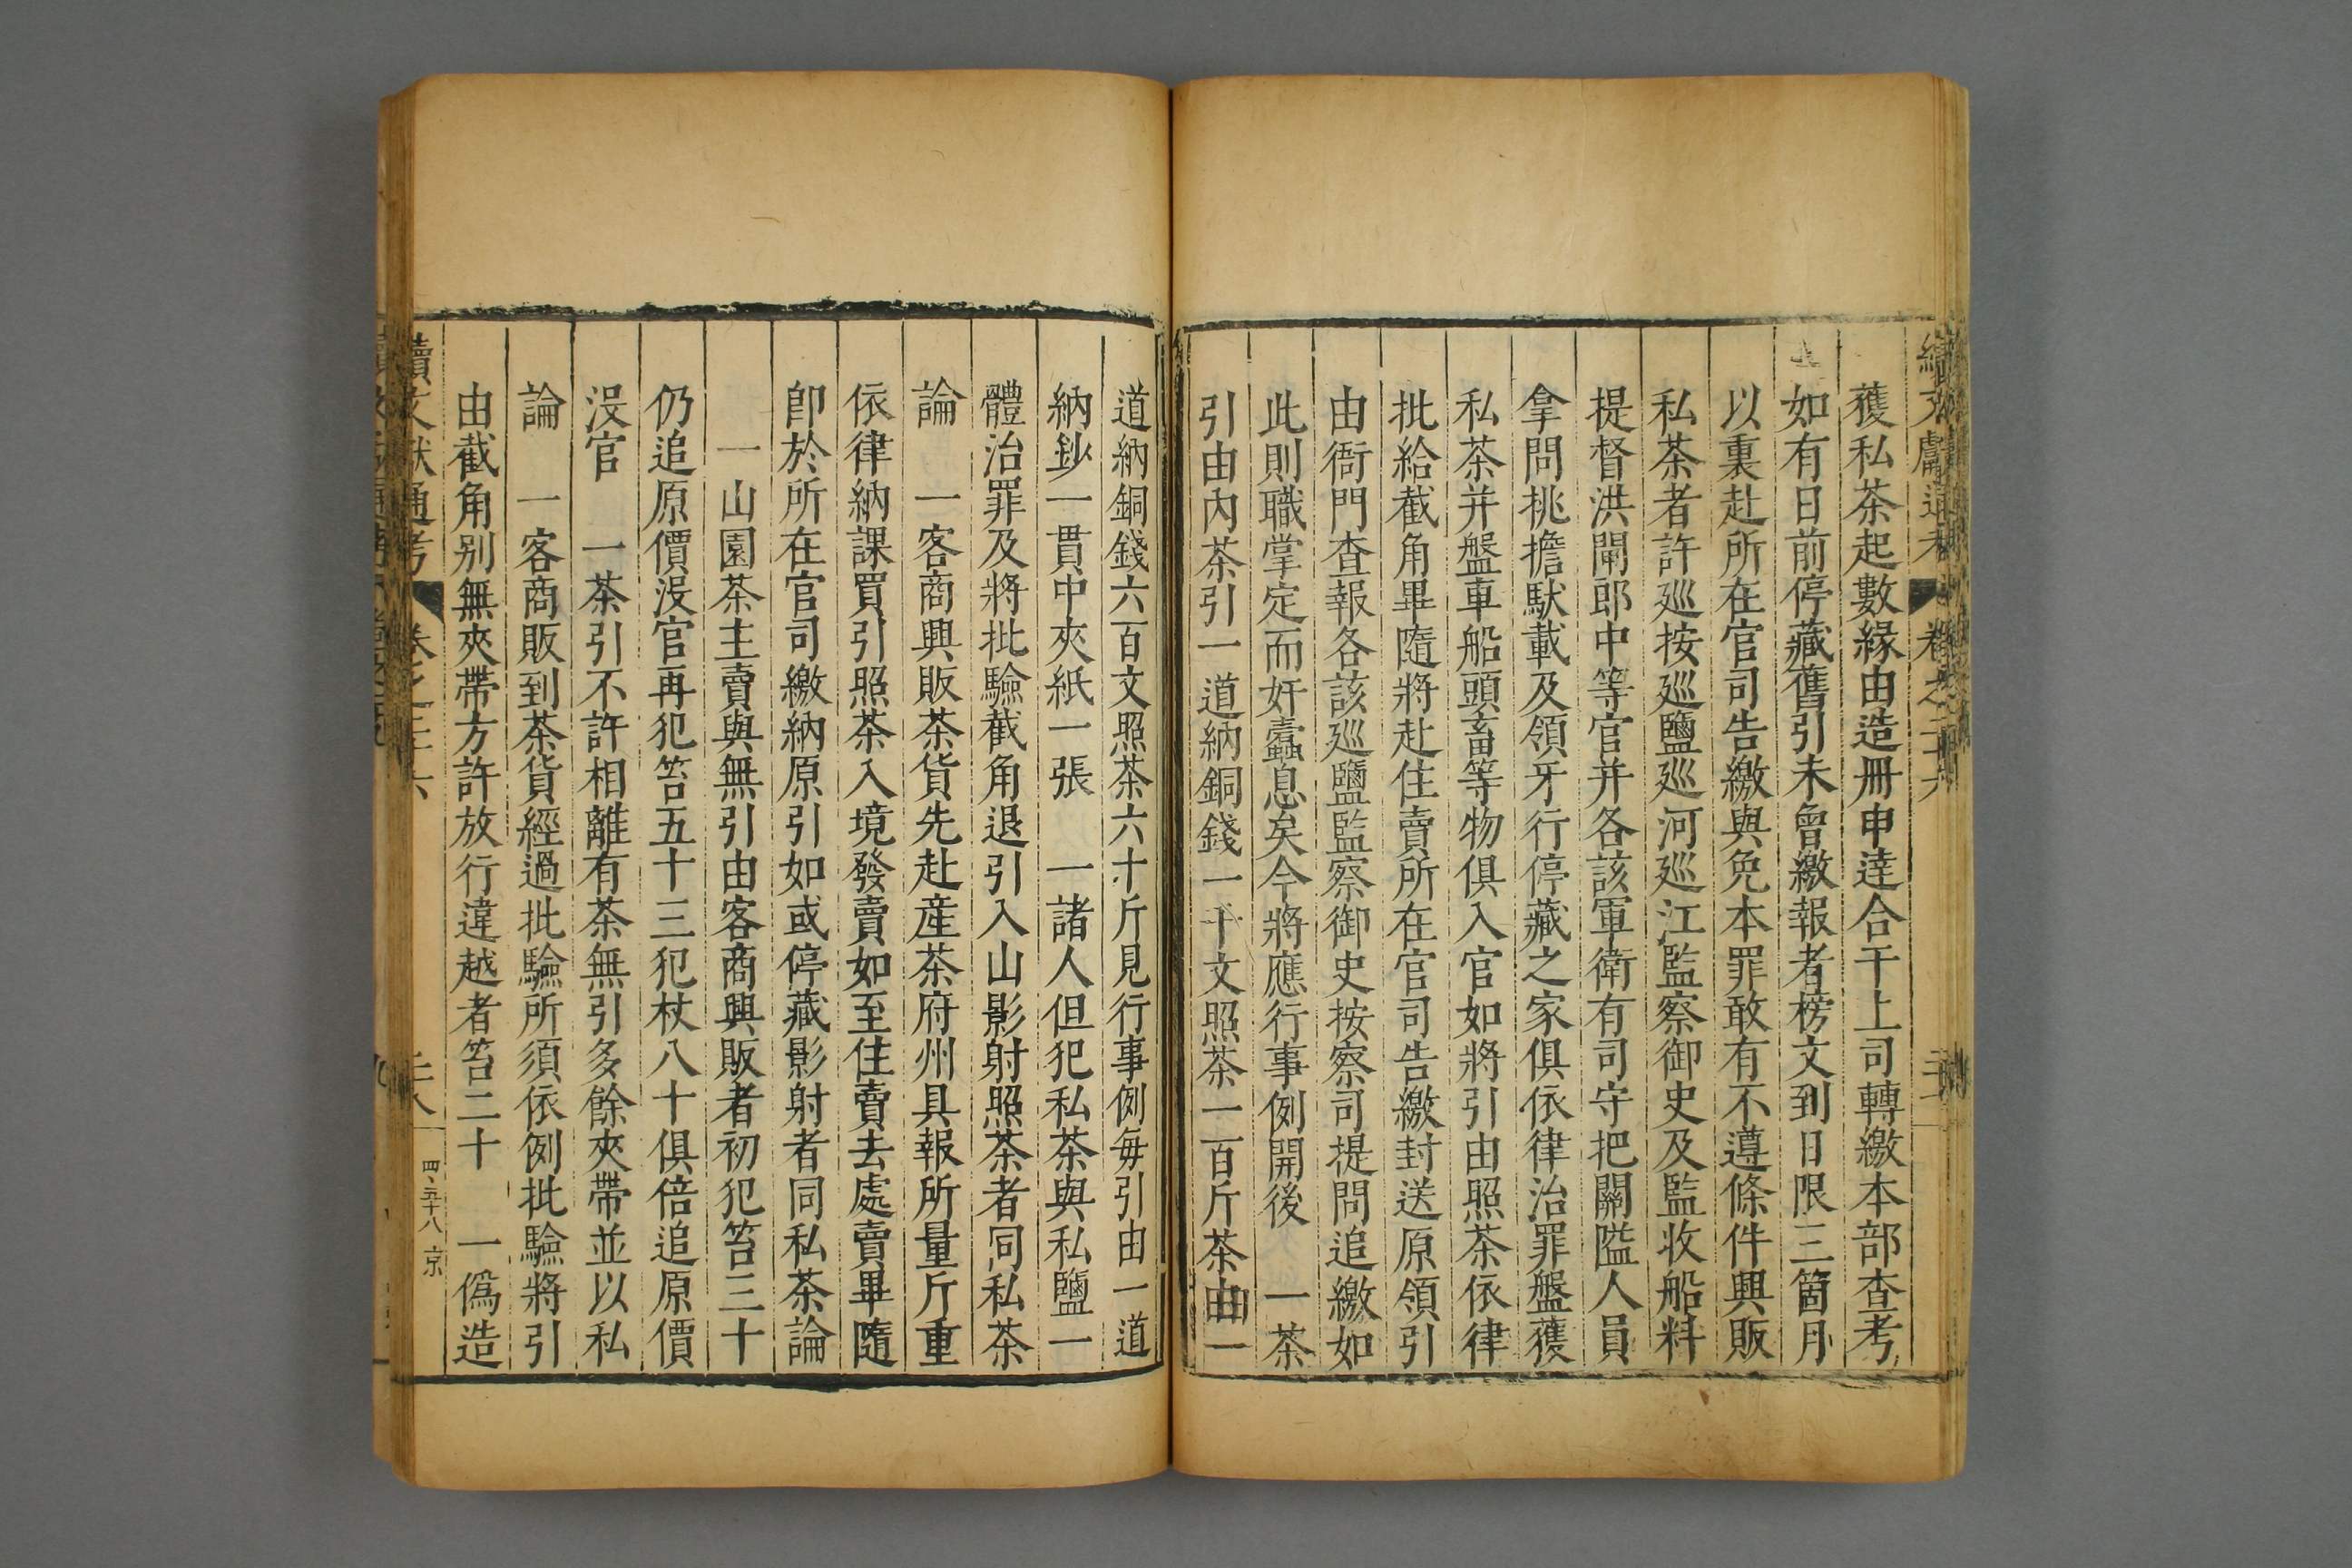 獲私茶起數緣由造冊申達合干上司轉繳本部查考
如有日前停藏舊引未曾繳報者榜文到日限三箇月
以裏赴所在官司告繳與免本罪敢有不遵條件興販
私茶者許廵按廵鹽廵河廵江監察御史及監收船料
提督洪閘郎中等官并各該軍衛有司守把關隘人員
拿問挑擔馱載及領牙行停藏之家俱依律治罪盤獲
私茶并盤車船頭畜等物俱入官如將引由照茶依律
批給截角畢隨將赴住賣所在官司告繳封送原領引
由衙門查報各該廵鹽監察御史按察司提問追繳如
此則職掌定而奸蠹息矣今將應行事例開後 一茶
引由內茶引一道納銅錢一千文照茶一百斤茶由一
道納銅錢六百文照茶六十斤見行事例每引由一道
納鈔一貫中夾紙一張 一諸人但犯私茶與私鹽一
體治罪及將批驗截角退引入山影射照茶者同私茶
論 一客商興販茶貨先赴產茶府州具報所量斤重
依律納課買引照茶入境發賣如至住賣去處賣畢隨
即於所在官司繳納原引如或停藏影射者同私茶論
一山園茶主賣與無引由客商興販者初犯笞三十
仍追原價沒官再犯笞五十三犯杖八十俱倍追原價
沒官 一茶引不許相離有茶無引多餘夾帶並以私
論 一客商販到茶貨經過批驗所須依例批驗將引
由截角別無夾帶方許放行違越者笞二十 一僞造
續文獻通考 卷之二十六